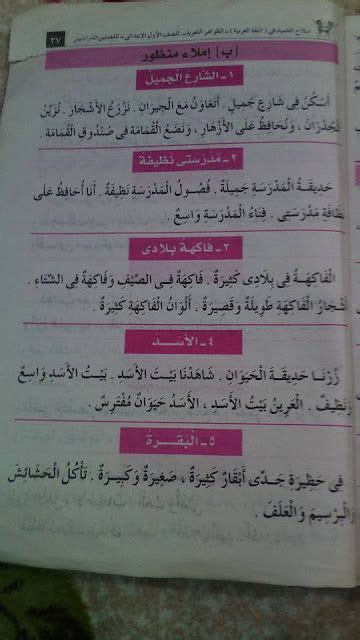 سلاح التلميذ فى ( اللغة العربية ) - الظواهر اللغوية - للصف الأول الابتدائى - للفصلين الدراسيين ٣٧
[ ب ] إملاء منظور
١ - الشارع الجميل
أَسْكُنُ فِى شَارِعٍ جَمِيلٍ . أَتَعَاوَنُ مَعَ الْجِيرَانِ . نَزْرَعُ الْأَشْجَارَ . نُزَيِّنُ
الْجُدْرَانَ ، وَنُحَافِظُ عَلَى الْأَزْهَارِ ، وَنَضَعُ الْقُمَامَةَ فِى صُنْدُوقِ الْقُمَامَةِ .
٢ - مدرستى نظيفة
حَدِيقَةُ الْمَدْرَسَةِ جَمِيلَةٌ . فُصُولُ الْمَدْرَسَةِ نَظِيفَةٌ . أَنَا أُحَافِظُ عَلَى
نَظَافَةِ مَدْرَسَتِى . فِنَاءُ الْمَدْرَسَةِ وَاسِعٌ .
٣ - فاكهة بلادى
الْفَاكِهَةُ فِى بِلَادِى كَثِيرَةٌ . فَاكِهَةٌ فِى الصَّيْفِ وَفَاكِهَةٌ فِى الشِّتَاءِ .
أَشْجَارُ الْفَاكِهَةِ طَوِيلَةٌ وَقَصِيرَةٌ . أَلْوَانُ الْفَاكِهَةِ كَثِيرَةٌ .
٤ - الأسد
زُرْنَا حَدِيقَةَ الْحَيَوَانِ . شَاهَدْنَا بَيْتَ الْأَسَدِ . بَيْتُ الْأَسَدِ وَاسِعٌ
وَنَظِيفٌ . الْعَرِينُ بَيْتُ الْأَسَدِ ، الْأَسَدُ حَيَوَانٌ مُفْتَرِسٌ .
٥ - البقرة
فِى حَظِيرَةِ جَدِّى أَبْقَارٌ كَثِيرَةٌ ، صَغِيرَةٌ وَكَبِيرَةٌ . تَأْكُلُ الْحَشَائِشَ
وَالْبِرْسِيمَ وَالْعَلَفَ .